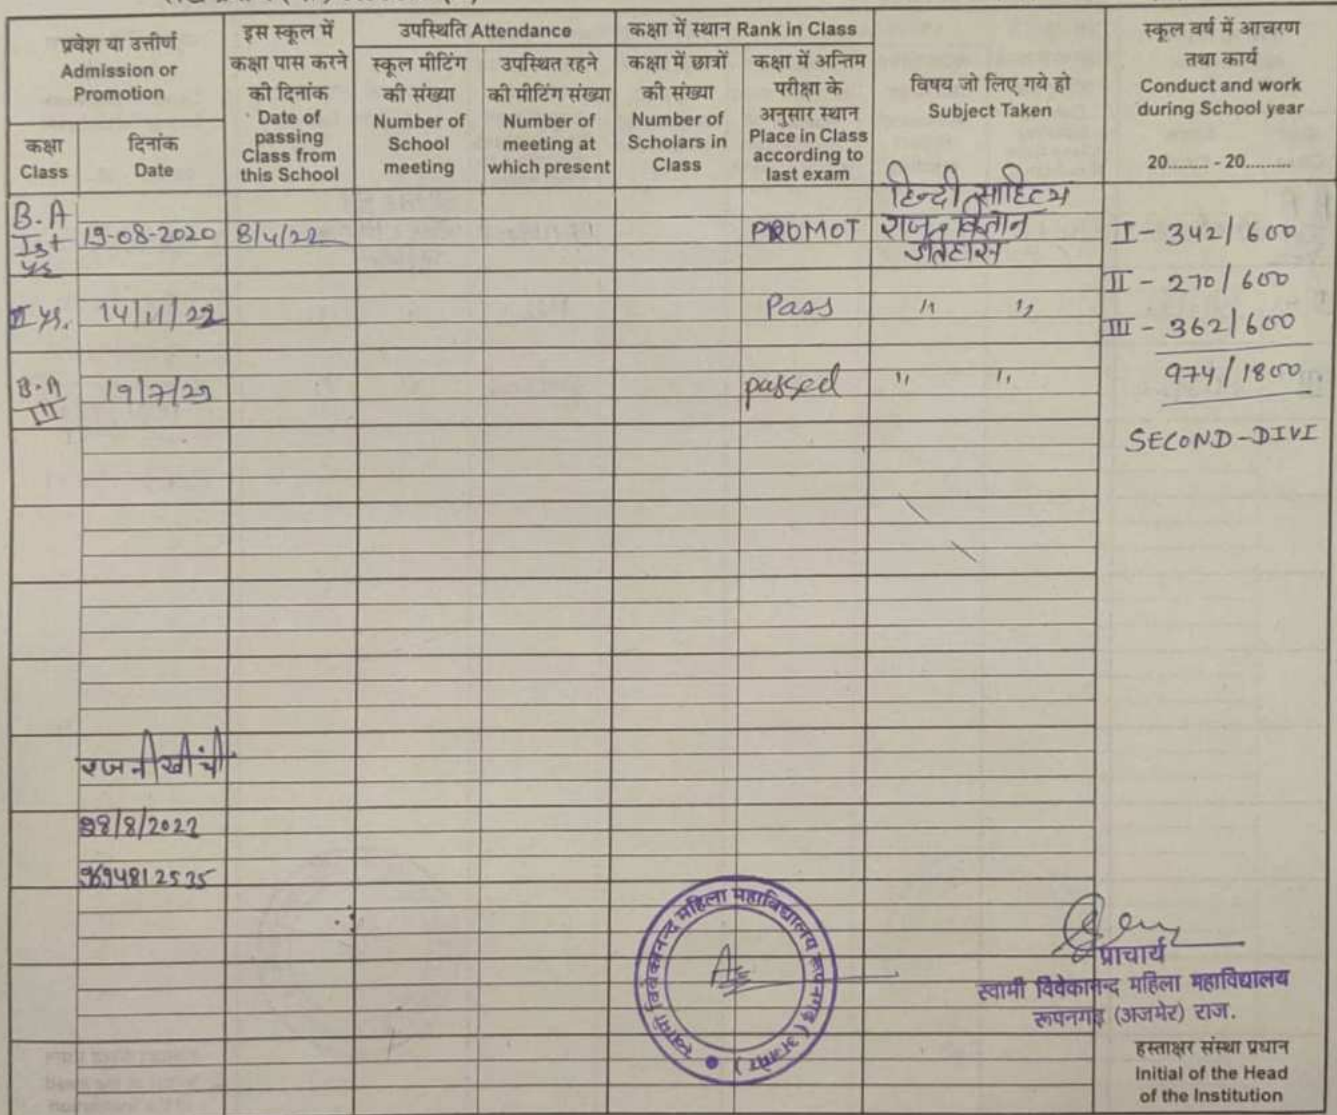 प्रवेश या उत्तीर्ण
Admission or
Promotion
कक्षा
Class
दिनांक
Date
इस स्कूल में
कक्षा पास करने
की दिनांक
Date of
passing
Class from
this School
उपस्थिति Attendance
स्कूल मीटिंग
की संख्या
Number of
School
meeting
उपस्थित रहने
की मीटिंग संख्या
Number of
meeting at
which present
कक्षा में स्थान Rank in Class
कक्षा में छात्रों
की संख्या
Number of
Scholars in
Class
कक्षा में अन्तिम
परीक्षा के
अनुसार स्थान
Place in Class
according to
last exam
विषय जो लिए गये हो
Subject Taken
स्कूल वर्ष में आचरण
तथा कार्य
Conduct and work
during School year
20......... - 20.........
B.A
Ist
yr
19-08-2020
8/4/22
PROMOT
हिन्दी साहित्य
राज. विज्ञान
इतिहास
I - 342/600
II - 270/600
II yr.
14/11/22
Pass
" "
III - 362/600
974/1800
B.A
III
19/7/23
passed
" "
SECOND-DIVI
रजनी खींची
/8/2022
9694812535
स्वामी विवेकानन्द महिला महाविद्यालय रूपनगढ़ (अजमेर)
प्राचार्य
स्वामी विवेकानन्द महिला महाविद्यालय
रूपनगढ़ (अजमेर) राज.
हस्ताक्षर संस्था प्रधान
Initial of the Head
of the Institution